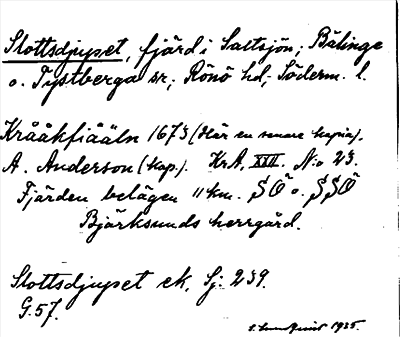 Slottsdjupet, fjärd i Saltsjön; Bälinge
o. Tystberga sr; Rönö hd, Söderm. l.
Krååkfiääln 1673 (här en senare kopia).
A. Anderson (kap.). Kr.A. XXII. N:o 23.
Fjärden belägen 11 km. SÖ o. SSÖ
Björksunds herrgård.
Slottsdjupet ek. Sj. 239.
G. 57.
1935.